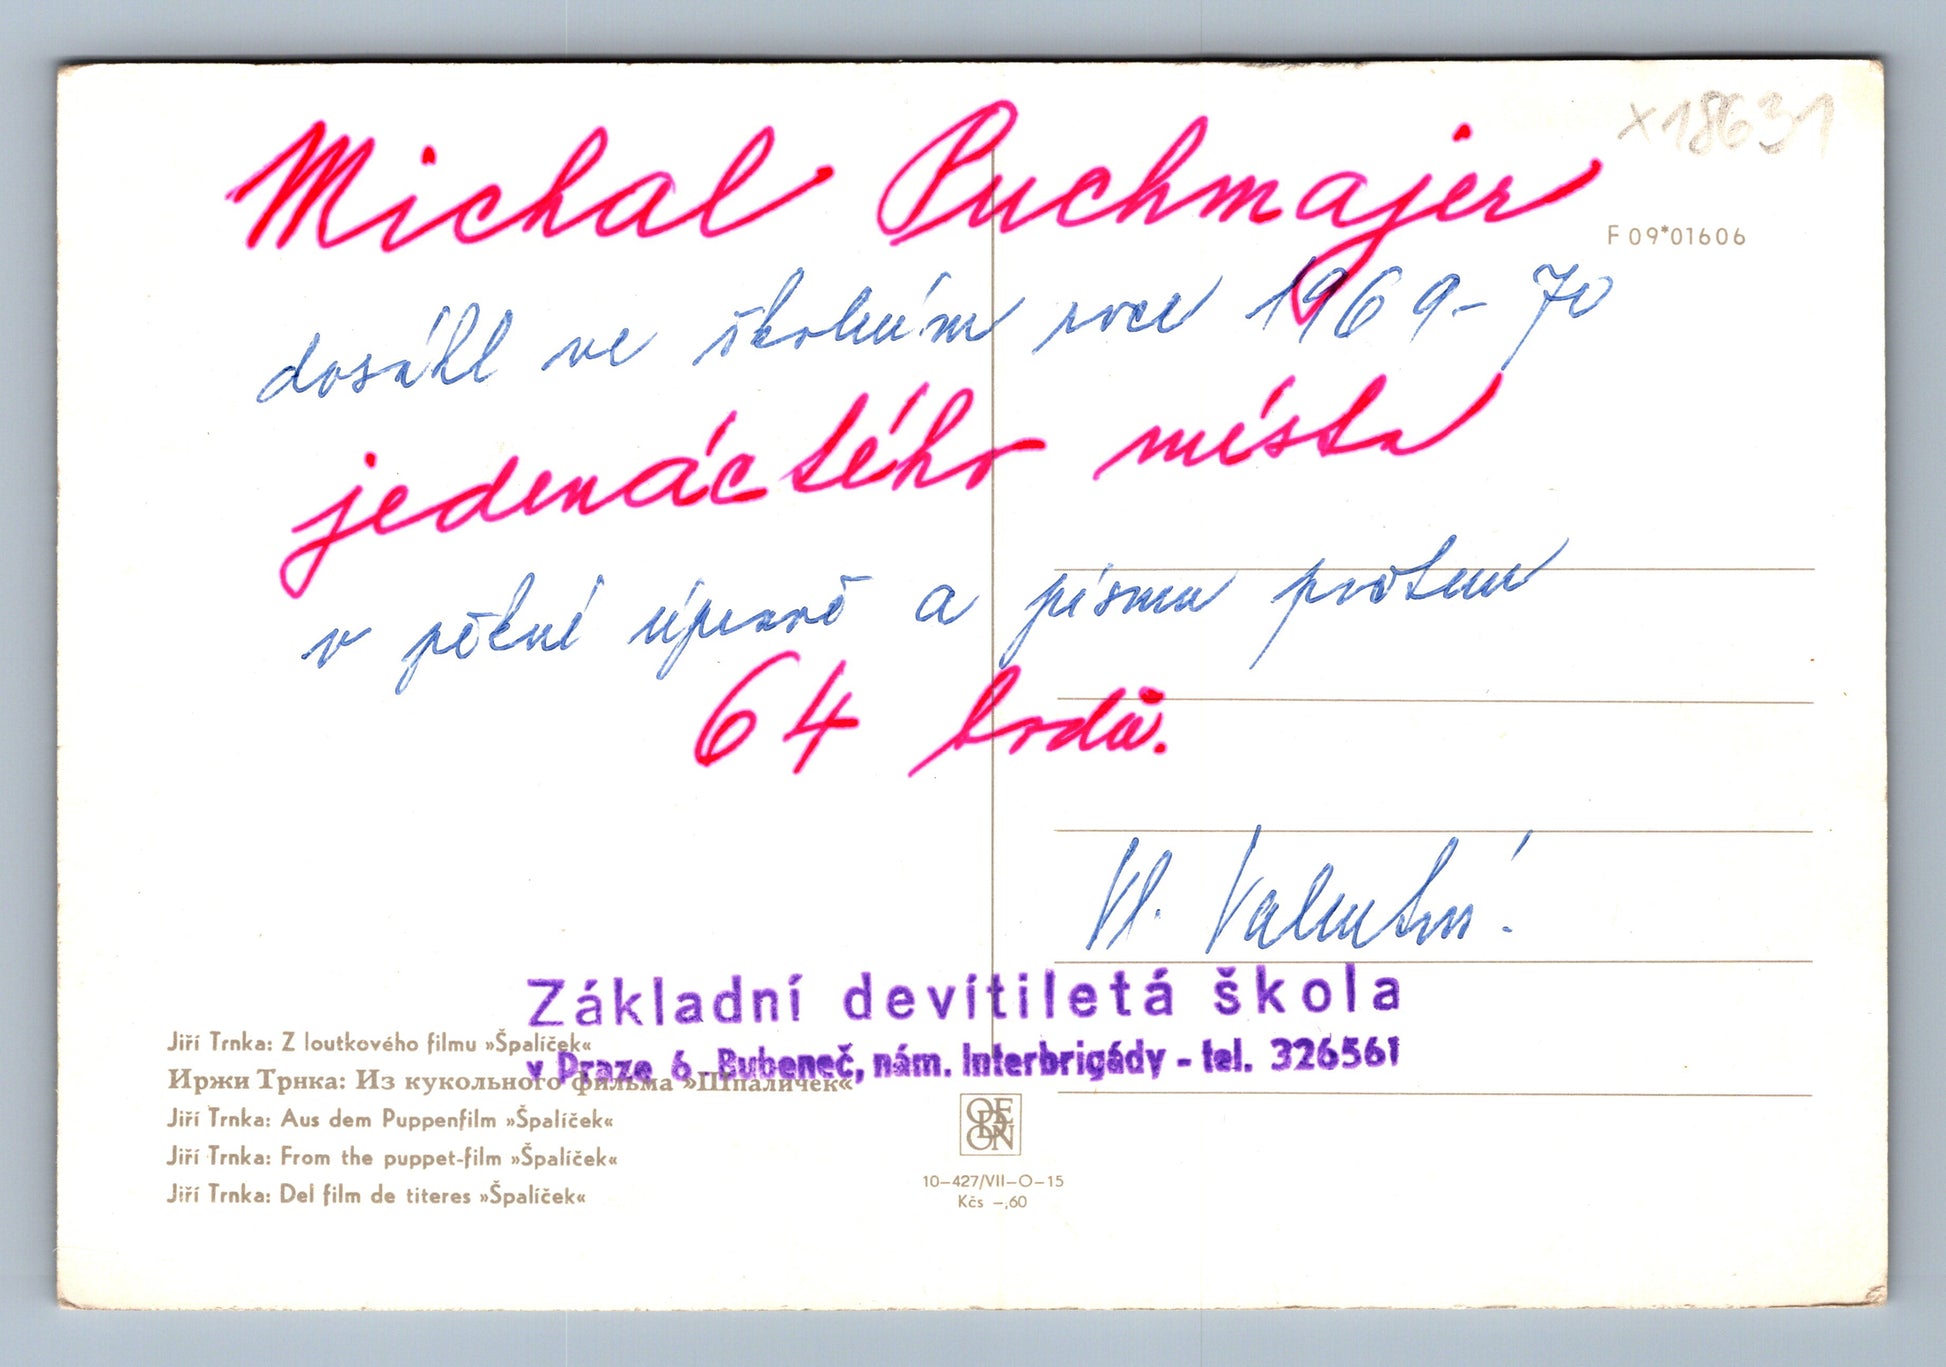 x18631
Michal Puchmajer
F 09*01606
dosáhl ve školním roce 1969-70
jedenáctého místa
v pěkné úpravě a písmu počtem
64 bodů.
Vl. Valentová
Základní devítiletá škola
v Praze 6 - Bubeneč, nám. Interbrigády - tel. 326561
Jiří Trnka: Z loutkového filmu »Špalíček«
Иржи Трнка: Из кукольного фильма »Шпаличек«
Jiří Trnka: Aus dem Puppenfilm »Špalíček«
Jiří Trnka: From the puppet-film »Špalíček«
Jiří Trnka: Del film de titeres »Špalíček«
ODEON
10–427/VII–O–15
Kčs –,60